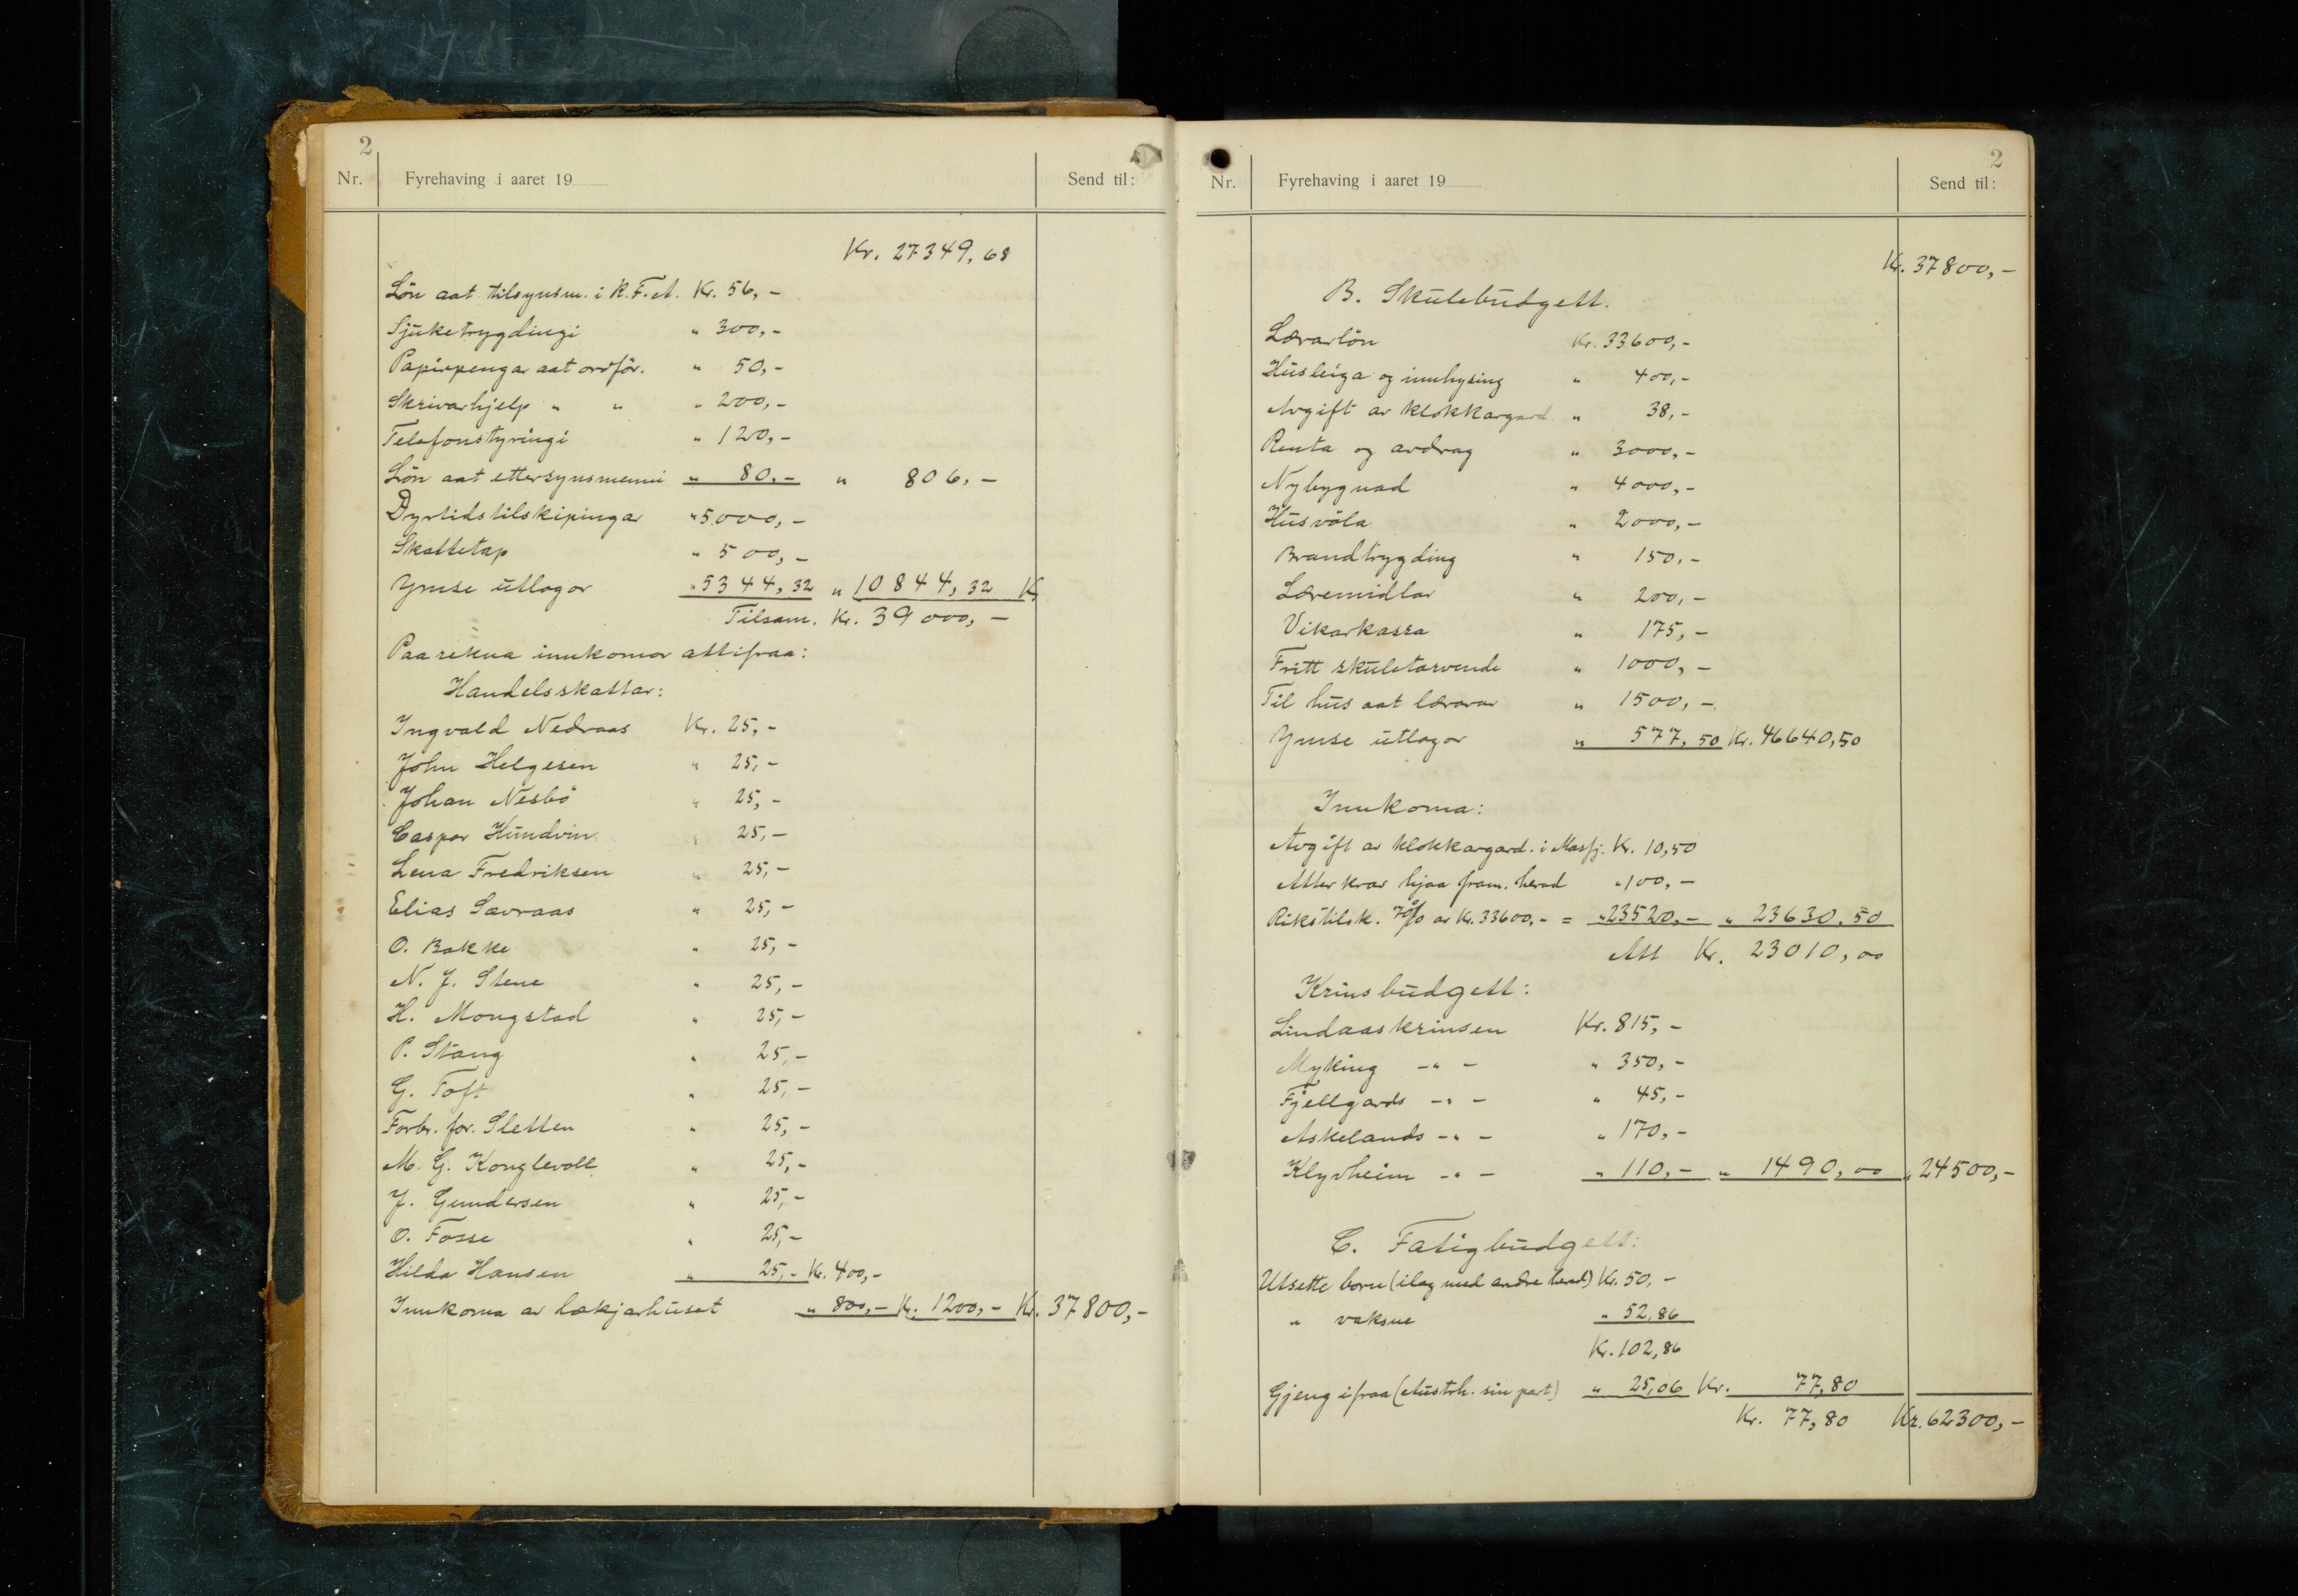 2
Nr. Fyrehaving i aaret 19 Send til:
Kr. 27349,68
Lön aat tilsynsm. i R.F.A. Kr. 56,-
Sjuketrygdingi " 300,-
Papirpengar aat ordför. " 50,-
Skrivarhjelp " " " 200,-
Telefonstyringi " 120,-
Lön aat ettersynsmenni " 80,- " 806,-
Dyrtidstilskipingar " 5000,-
Skattetap " 500,-
Ymse utlogor " 5344,32 " 10844,32 Kr
Tilsam. Kr. 39000,-
Paarekna innkomor attifraa:
Handelsskattar:
Ingvald Nedraas Kr. 25,-
John Helgesen " 25,-
Johan Nesbö " 25,-
Caspar Hundvin " 25,-
Lena Fredriksen " 25,-
Elias Sævraas " 25,-
O. Bakke " 25,-
N. J. Stene " 25,-
H. Mongstad " 25,-
P. Stang " 25,-
G. Toft " 25,-
Forbr. for. Sletten " 25,-
M. G. Konglevoll " 25,-
J. Gundersen " 25,-
O. Fosse " 25,-
Hilda Hansen " 25,- Kr. 400,-
Innkoma av lækjarhuset " 800,- Kr. 1200,- Kr. 37800,-
2
Nr. Fyrehaving i aaret 19 Send til:
Kr. 37800,-
B. Skulebudgett.
Lærarlön Kr. 33600,-
Husleiga og innhysing " 400,-
Avgift av klokkargard " 38,-
Renta og avdrag " 3000,-
Nybygnad " 4000,-
Husvöla " 2000,-
Brandtrygding " 150,-
Læremidlar " 200,-
Vikarkassa " 175,-
Fritt skuletarvende " 1000,-
Til hus aat lærarar " 1500,-
Ymse utlogor " 577,50 Kr. 46640,50
Innkoma:
Avgift av klokkargard. i Masfj. Kr. 10,50
Atterkrav hjaa fram. herad " 100,-
Rikstilsk. 70% av Kr. 33600,- = " 23520,- " 23630,50
Att Kr. 23010,00
Krinsbudgett:
Lindaaskrinsen Kr. 815,-
Myking -"- " 350,-
Fjellgards -"- " 45,-
Askelands -"- " 170,-
Klyvheim -"- " 110,- " 1490,00 " 24500,-
C. Fatigbudgett:
Utsette born (ilag med andre herad) Kr. 50,-
" vaksne " 52,86
Kr. 102,86
Gjeng ifraa (Austrh. sin part) " 25,06 Kr. 77,80
Kr. 77,80 Kr. 62300,-